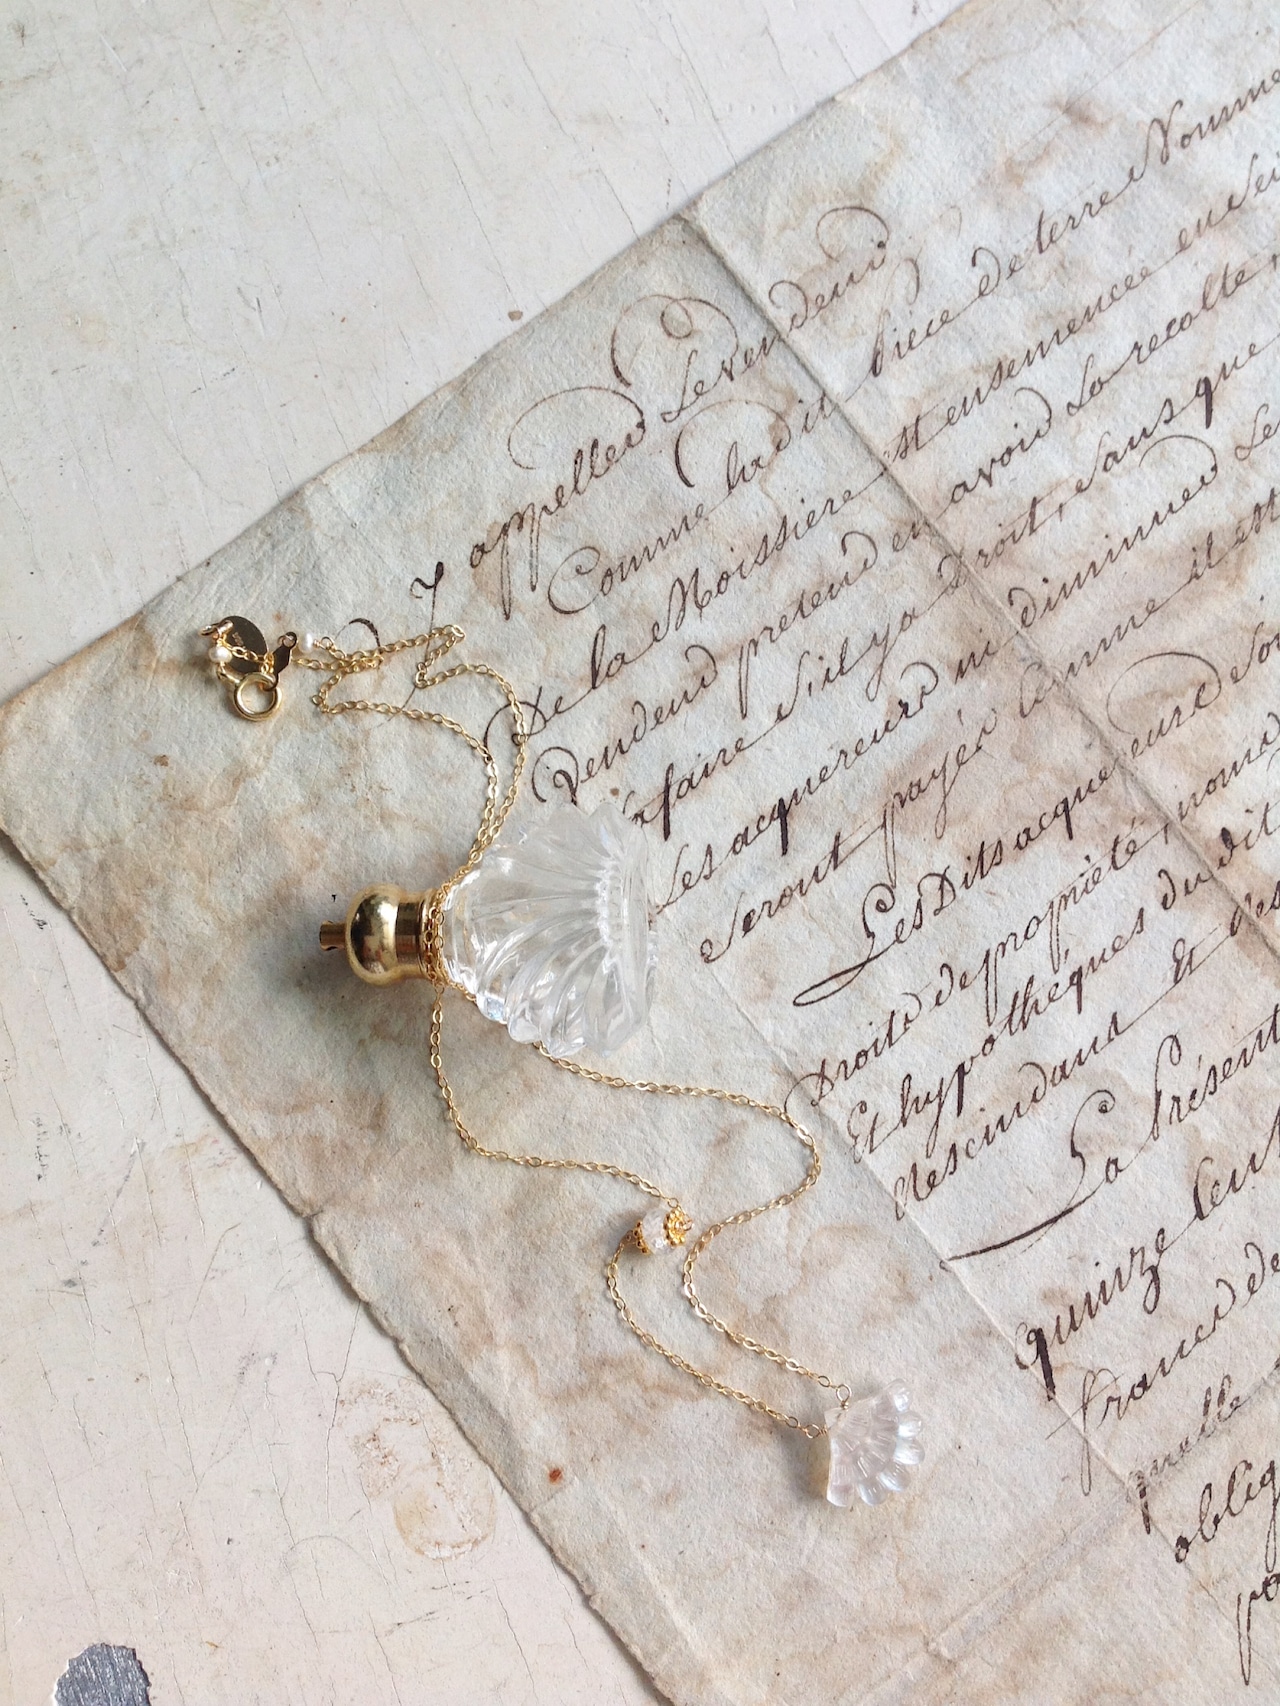 y appeller Le vendeur
Comme la dit pièce de terre Nomme
De la Moissiere est ensemencée en Sei
Vendeur pretend en avoir La recolte,
a faire S'il y a Droit, Sans que
Les acquereurs ni diminuer Le
Seront payée Comme il est
Les Dits acquereurs So
Droits de propriété, nom
Et hypothéques du dit
descendans Et des
La Présent
quinze Cent
francs de
mille
oblig
po